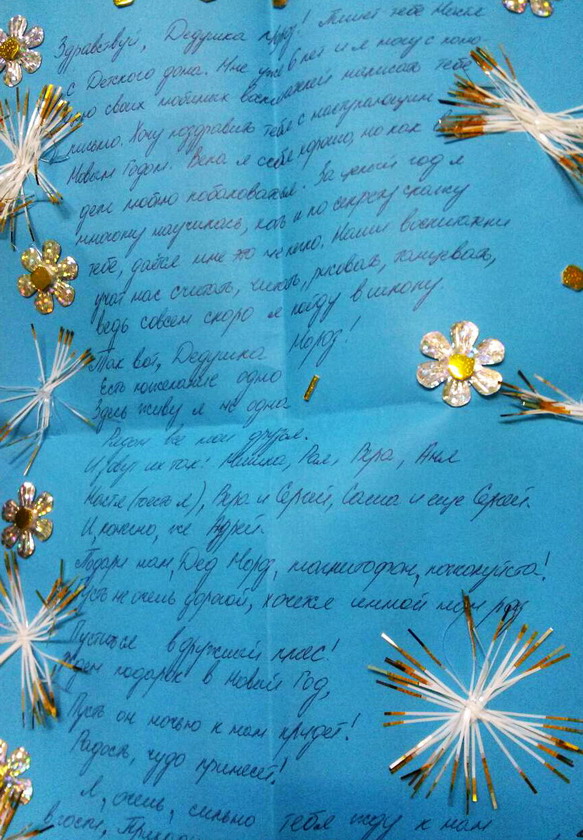 Здравствуй, Дедушка Мороз! Пишет тебе Настя
с Детского дома. Мне уже 6 лет и я могу с помо-
своих любимых написать тебе
письмо. Хочу поздравить тебя с наступающим
Новым Годом. Вела я себя хорошо, но как
дети люблю побаловаться. За целый год я
многому научилась, хоть и по секрету скажу
тебе, даётся мне это не легко. Наши
учат нас считать, читать, рисовать, танцевать,
ведь совсем скоро я пойду в школу.
Так вот, Дедушка Мороз!
Есть пожелание одно
Здесь живу я не одна
Рядом все мои друзья.
Зовут их так: Мишка, Рая, Вера, Аня
Настя (тоесть я), Вера и Сергей, Саша и еще Сергей.
И, конечно, же Андрей.
Подари нам, Дед Мороз, магнитофон, пожалуйста!
Пусть не очень дорогой, хочется нам
Пуститься в дружный пляс!
Ждем подарок в Новый Год,
Пусть он ночью к нам придет!
Радость, чудо принесет!
Я, очень, сильно тебя жду к нам
в гости,